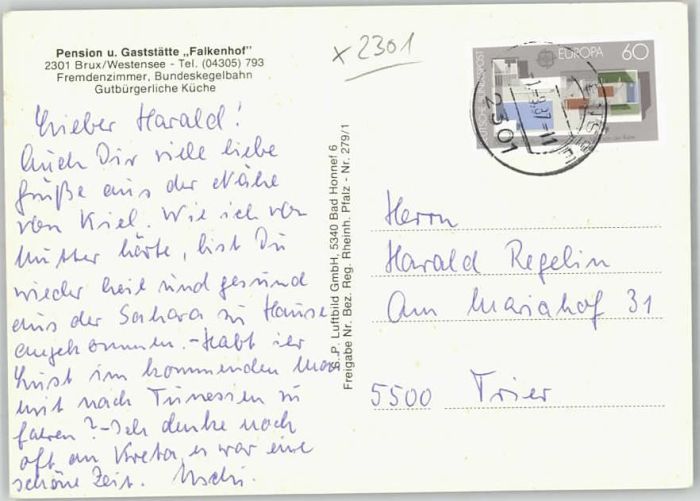 Pension u. Gaststätte „Falkenhof"
2301 Brux/Westensee - Tel. (04305) 793
Fremdenzimmer, Bundeskegelbahn
Gutbürgerliche Küche
x 2301
EUROPA 60
2301
Lieber Harald!
Auch Dir viele liebe
Grüße aus der Nähe
von Kiel. Wie ich von
Mutter hörte, bist Du
wieder heil und gesund
aus der Sahara zu Hause
angekommen. - Habt ihr
Lust im kommenden
mit nach Tunesien zu
fahren? - Ich denke noch
oft an Kreta, es war eine
schöne Zeit. Uschi.
Luftbild GmbH, 5340 Bad Honnef 6
Freigabe Nr. Bez. Reg. Rheinh. Pfalz - Nr. 279/1
Herrn
Harald Regelin
Am Mariahof 31
5500 Trier